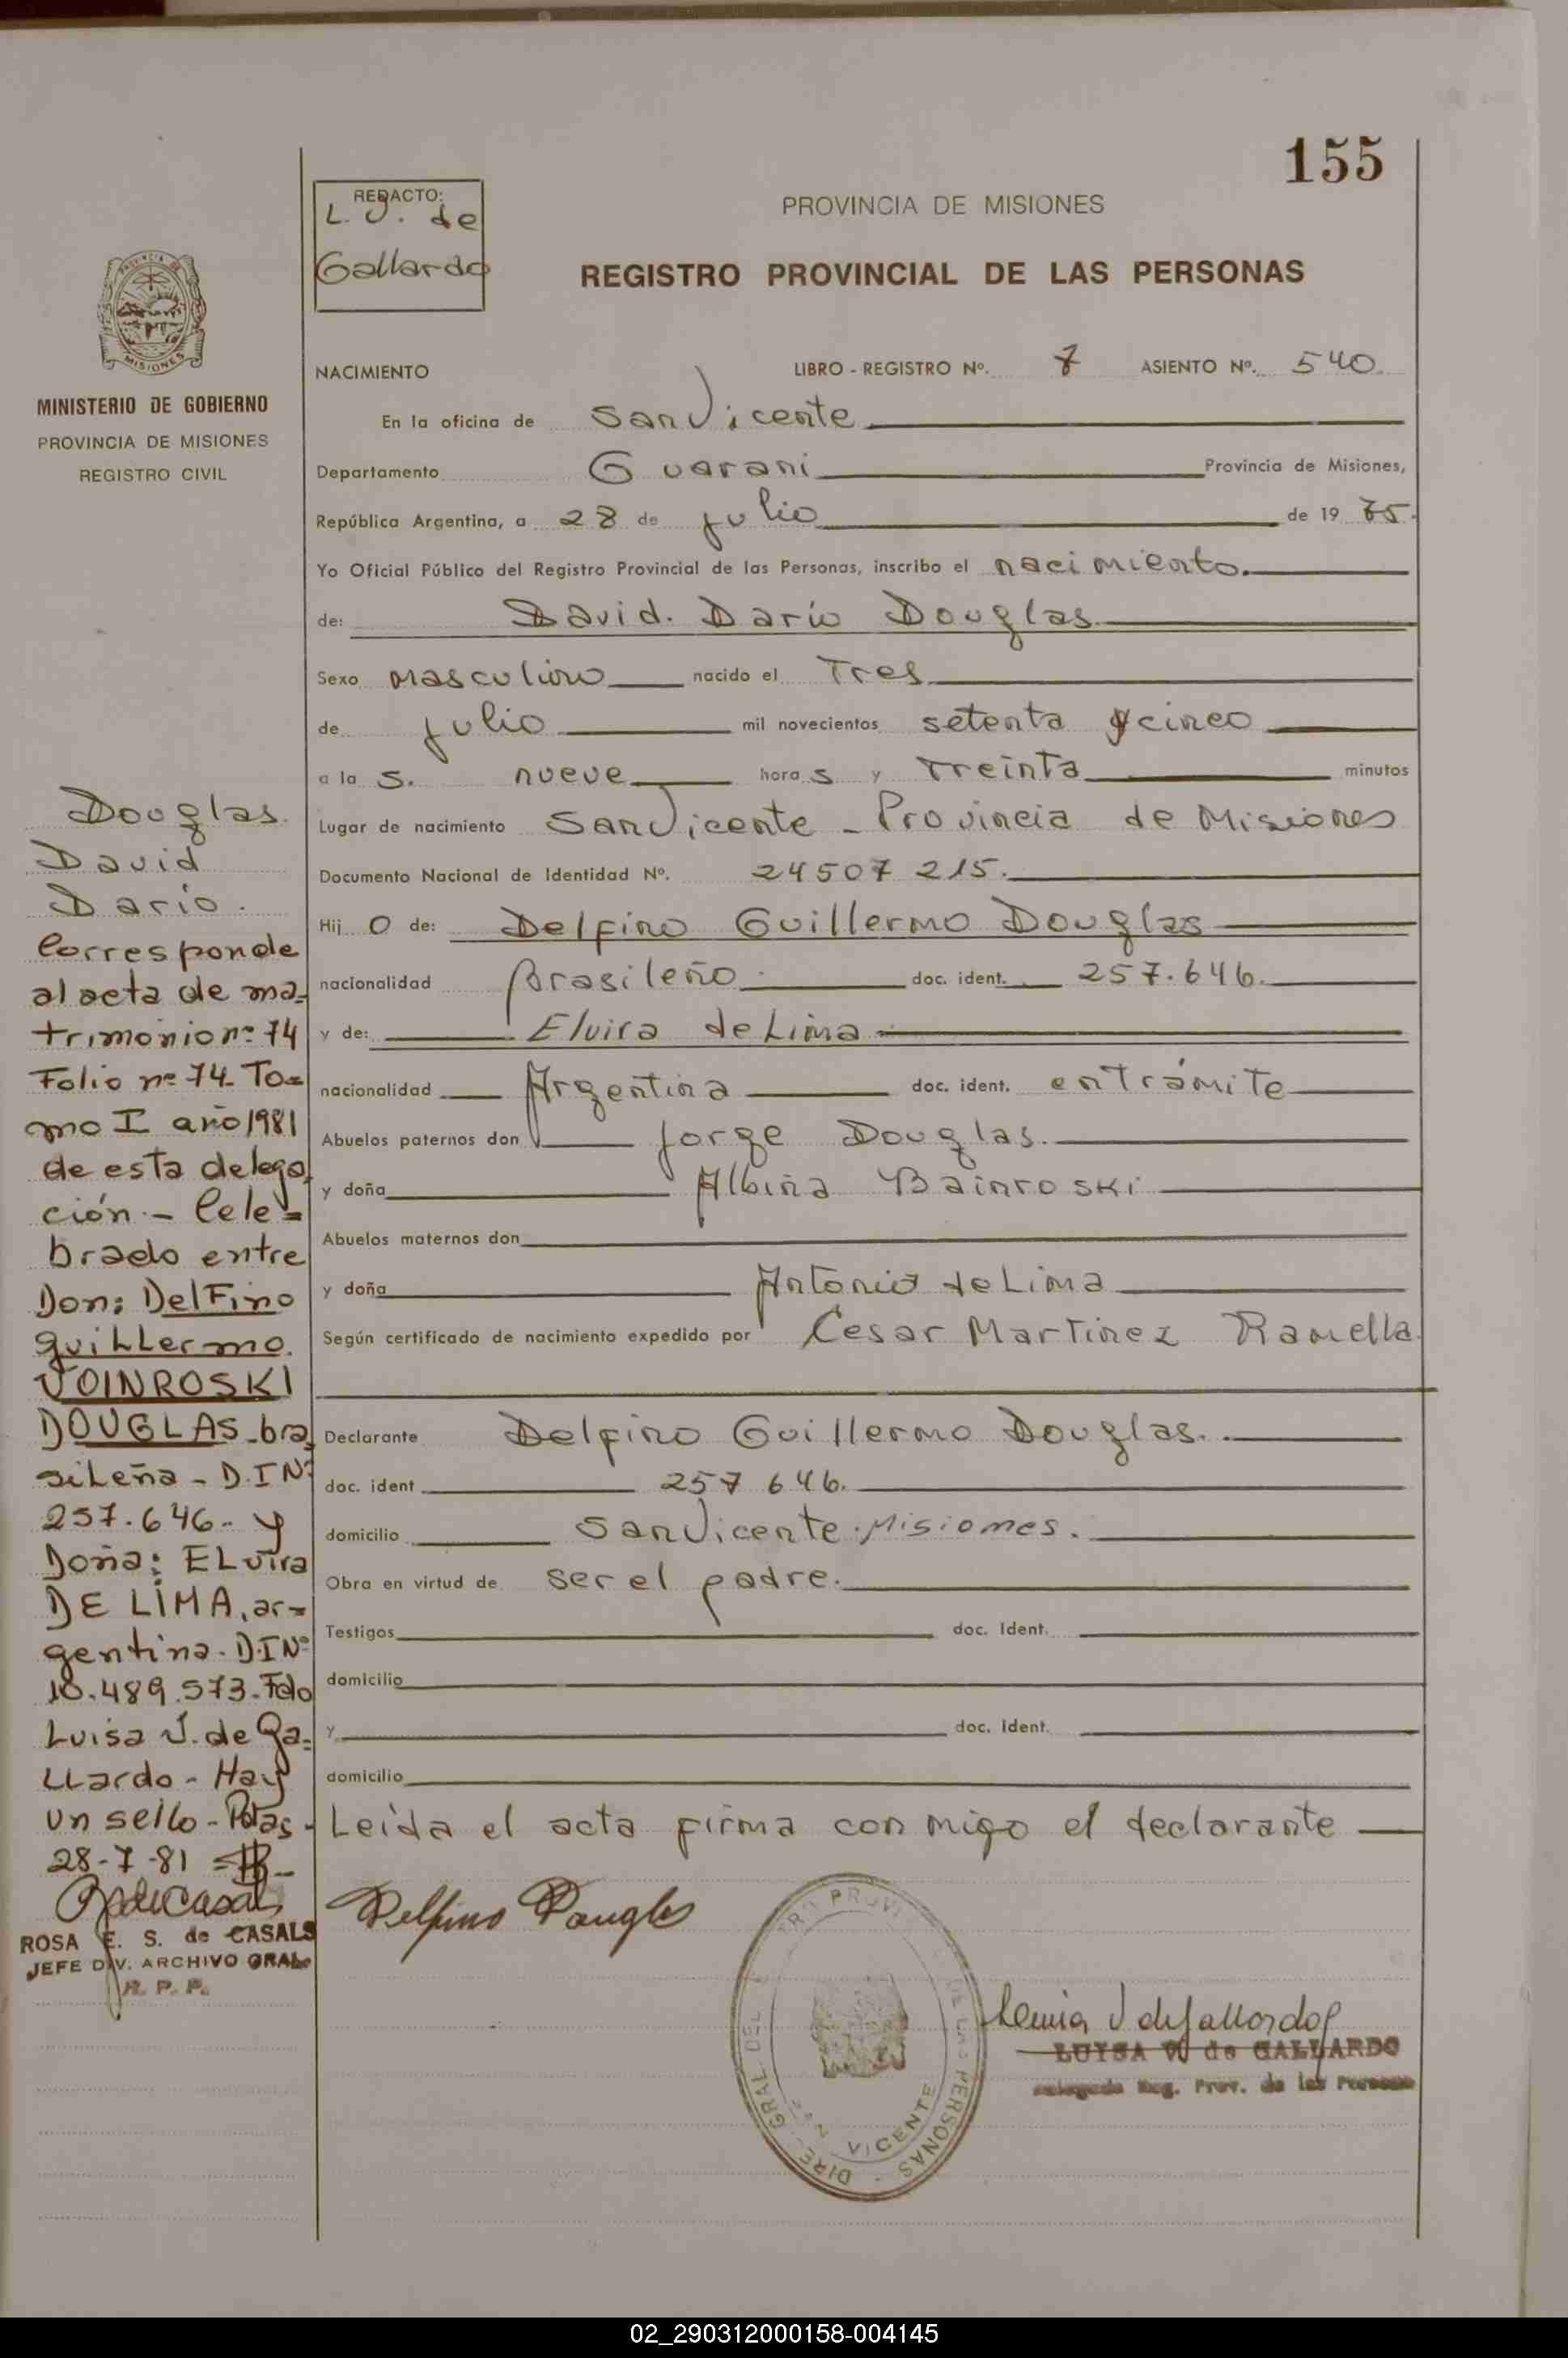 155
REDACTO:
L. J. de
Gallardo
PROVINCIA DE MISIONES
REGISTRO PROVINCIAL DE LAS PERSONAS
MISIONES
MINISTERIO DE GOBIERNO
PROVINCIA DE MISIONES
REGISTRO CIVIL
NACIMIENTO LIBRO - REGISTRO Nº. 7 ASIENTO Nº. 540
En la oficina de San Vicente
Departamento Guarani Provincia de Misiones,
República Argentina, a 28 de julio de 19 75.
Yo Oficial Público del Registro Provincial de las Personas, inscribo el nacimiento.
de: David. Dario Douglas
Sexo masculino nacido el Tres
de julio mil novecientos setenta y cinco
a la s. nueve hora s y Treinta minutos
Lugar de nacimiento San Vicente - Provincia de Misiones
Documento Nacional de Identidad Nº. 24507 215.
Hij o de: Delfino Guillermo Douglas
nacionalidad Brasileño. doc. ident. 257.646.
y de: Elvira de Lima
nacionalidad Argentina doc. ident. en trámite
Abuelos paternos don Jorge Douglas.
y doña Albina Bainroski
Abuelos maternos don
y doña Antonio de Lima
Según certificado de nacimiento expedido por Cesar Martinez Ramella
Declarante Delfino Guillermo Douglas.
doc. ident 257 646.
domicilio San Vicente. Misiones.
Obra en virtud de ser el padre.
Testigos doc. Ident.
domicilio
y doc. Ident.
domicilio
Leida el acta firma con migo el declarante
Douglas.
David
Dario.
Corresponde
al acta de ma-
trimonio nº 74
Folio nº 74. To=
mo I año 1981
de esta delega
ción.- Cele=
brado entre
Don: DelFino
guiLLermo.
VOINROSKI
DOUGLAS -bra
siLeña - D.I Nº
257.646.- y
Doña: ELvira
DE LIMA, ar=
gentina. D.I Nº
10.489.573.-Fdo
Luisa V. de Ga=
LLardo - Hay
un sello - Pdas -
28-7-81
ROSA E. S. de CASALS
JEFE DIV. ARCHIVO GRAL.
R. P. P.
Delfino Douglas
DIRE. GRAL DEL PROV DE LAS PERSONAS -
VICENTE
Luisa V de Gallardo
LUISA V. de GALLARDO
Delegada Reg. Prov. de las Personas
02_290312000158-004145